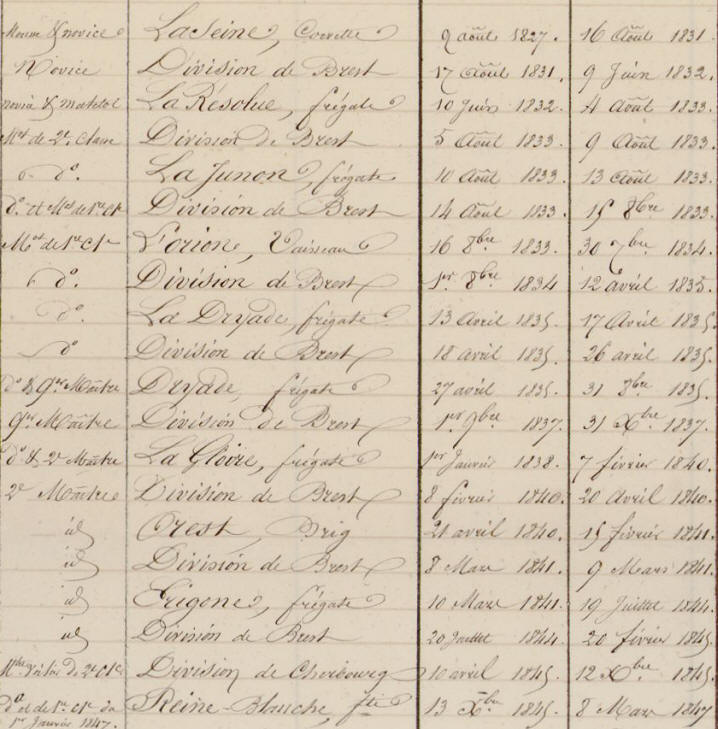 Mousse & novice La Seine, Corvette 9 août 1827. 16 Août 1831.
Novice Division de Brest 17 Août 1831. 9 Juin 1832.
novice & matelot La Résolue, frégate 10 Juin 1832. 4 Août 1833.
Mot de 2e. Classe Division de Brest 5 Août 1833. 9 Août 1833.
do. La Junon, frégate 10 Août 1833. 13 Août 1833.
do. et Mot de 1re Cle Division de Brest 14 Août 1833. 15 8bre 1833.
Mot de 1re Cle L'orione, Vaisseau 16 8bre 1833. 30 7bre 1834.
do. Division de Brest 1er 8bre 1834 12 avril 1835.
do. La Dryade, frégate 13 Avril 1835. 17 Avril 1835.
do Division de Brest 18 avril 1835. 26 avril 1835.
do & qer Maître Dryade, frégate 27 avril 1835. 31 8bre 1835.
qer Maître Division de Brest 1er 9bre 1837. 31 Xbre 1837.
do & 2e Maître La Gloire, frégate 1er Janvier 1838. 7 février 1840.
2e Maître Division de Brest 8 février 1840. 20 Avril 1840.
id Orest, Brig 21 avril 1840. 15 février 1841.
id Division de Brest 8 Mars 1841. 9 Mars 1841.
id Erigone, frégate 10 Mars 1841. 19 Juillet 1844.
id Division de Brest 20 Juillet 1844. 20 février 1845.
de 2e Cle Division de Cherbourg 10 avril 1845. 12 Xbre 1845.
do et de 1re Cle du Reine-Blanche, fte 13 Xbre 1845. 8 Mars 1847
1er Janvier 1847.